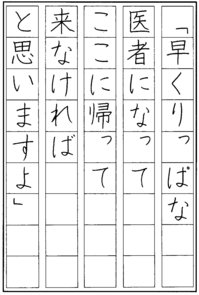 「早くりっぱな
医者になって
ここに帰って
来なければ
と思いますよ」